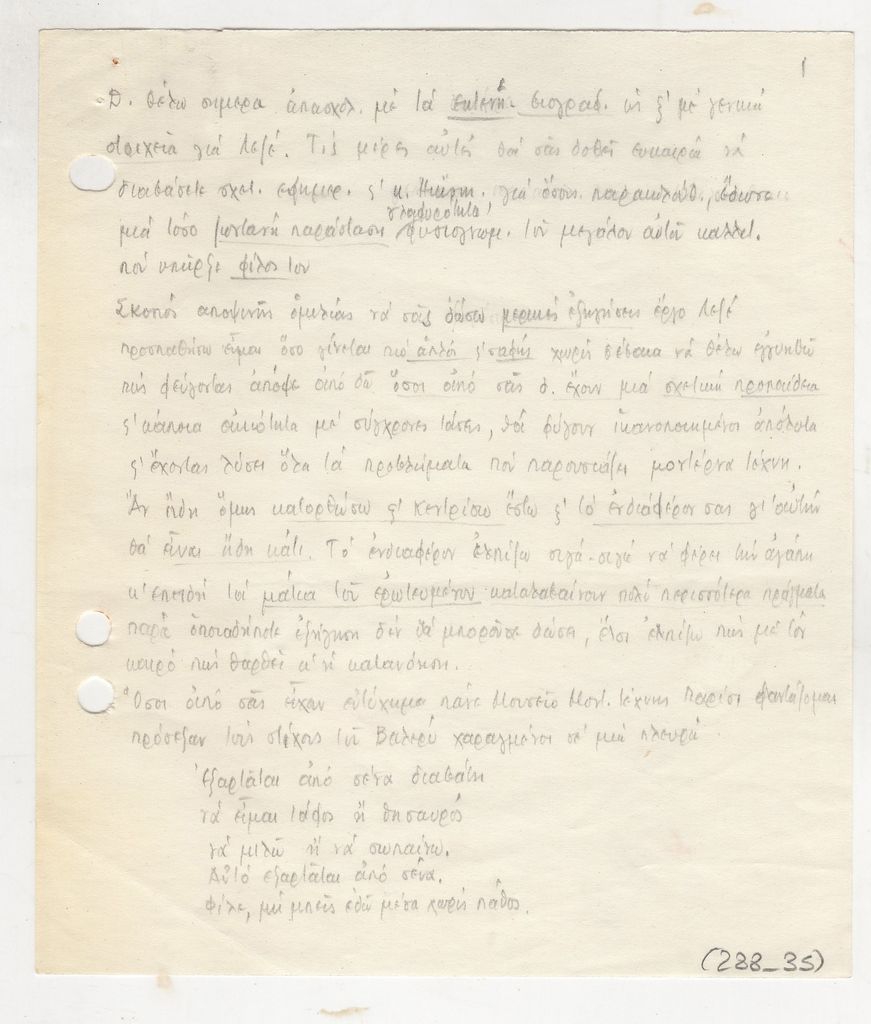 1
Δ. θέλω σήμερα ἀπασχολ. μέ τά ἐκτενῆ βιογραφ. ὡς ϛ' μέ γενικά
στοιχεῖα γιά Λεζέ. Τίς μέρες αὐτές θά σᾶς δοθεῖ εὐκαιρία νά
διαβάσετε σχετ. εφημερ. ϛ' κ. , γιά ὅσους παρακολούθ., ἔδωσε
γλαφυρότητα
μιά τόσο ζωντανή παράσταση φυσιογνωμ. τοῦ μεγάλου αὐτοῦ καλλιτ.
πού υπῆρξε φίλος του
Σκοπός αποψινῆς ὁμιλίας νά σᾶς δώσω μερικές ἐξηγήσεις ἔργο Λεζέ
προσπαθήσω εἶμαι ὅσο γίνεται πιό ἁπλός ϛ' σαφής χωρίς βέβαια νά θέλω εγγυηθῶ
πώς φεύγοντας ἀπόψε ἀπό δῶ ὅσοι ἀπό σᾶς δ. ἔχουν μιά σχετική προπαίδεια
ϛ' κάποια οἰκιότητα μέ σύγχρονες τάσεις, θά φύγουν ἱκανοποιημένοι ἀπόλυτα
ϛ' ἔχοντας λύσει ὅλα τά προβλήματα πού παρουσιάζει μοντέρνα τέχνη.
Ἄν ὅμως κατορθώσω ϛ' κεντρίσω ἔστω ϛ' τό ἐνδιαφέρον σας γι' αὐτήν
θά εἶναι ἤδη κάτι. Τό ἐνδιαφέρον ἐλπίζω σιγά-σιγά νά φέρει τήν ἀγάπη
κ' επειδή τά μάτια τοῦ ἐρωτευμένου καταλαβαίνουν πολύ περισσότερα πράγματα
παρά ὁποιαδήποτε ἐξήγηση δέν θά μποροῦσε δώσει, ἔτσι ἐλπίζω πώς μέ τόν
καιρό πώς θαρθεῖ κ' ἡ κατανόηση.
Ὅσοι ἀπό σᾶς εἶχαν εὐτύχημα πᾶνε Μουσεῖο Μοντ. Τέχνης Παρίσι φαντάζομαι
πρόσεξαν τούς στίχους τοῦ Βαλερύ χαραγμένοι σέ μιά πλευρά
Ἐξαρτᾶται ἀπό σένα διαβάτη
νά εἶμαι τάφος ἤ θησαυρός
νά μιλῶ ἤ νά σωπαίνω.
Αὐτό εξαρτᾶται ἀπό σένα.
Φίλε, μή μπεῖς ἐδῶ μέσα χωρίς πάθος.
(288_35)